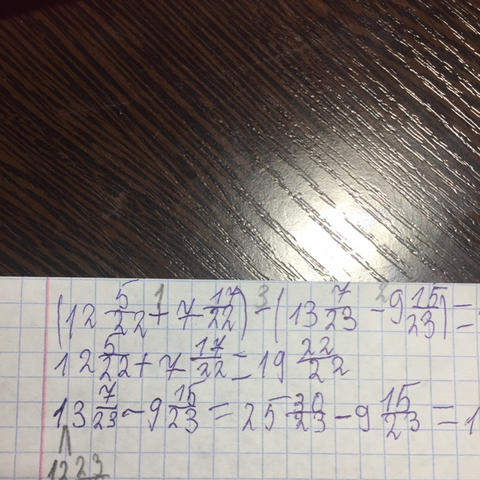 (12 5/22 + 7 17/22) - (13 7/23 - 9 15/23) =
12 5/22 + 7 17/22 = 19 22/22
13 7/23 - 9 15/23 = 25 30/23 - 9 15/23 = 1
12 23